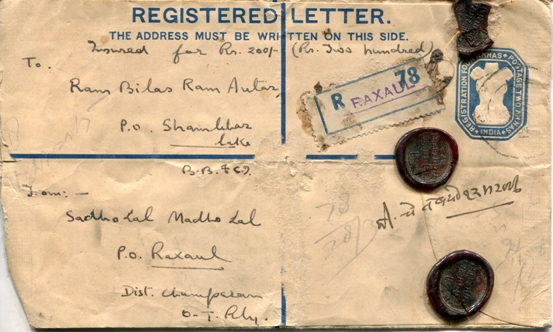 REGISTERED LETTER.
THE ADDRESS MUST BE WRITTEN ON THIS SIDE.
Insured for Rs. 200/- (Rs. Two hundred)
To.
Ram Bilas Ram Autar,
P.O. Shambhar
lake
R RAXAUL 78
REGISTRATION FOUR ANNAS
POSTAGE TWO ANNAS
INDIA
B.B. & C.I.
From: -
Sadho Lal Madho Lal
P.O. Raxaul
Dist. Champaran
O. T. Rly.
78